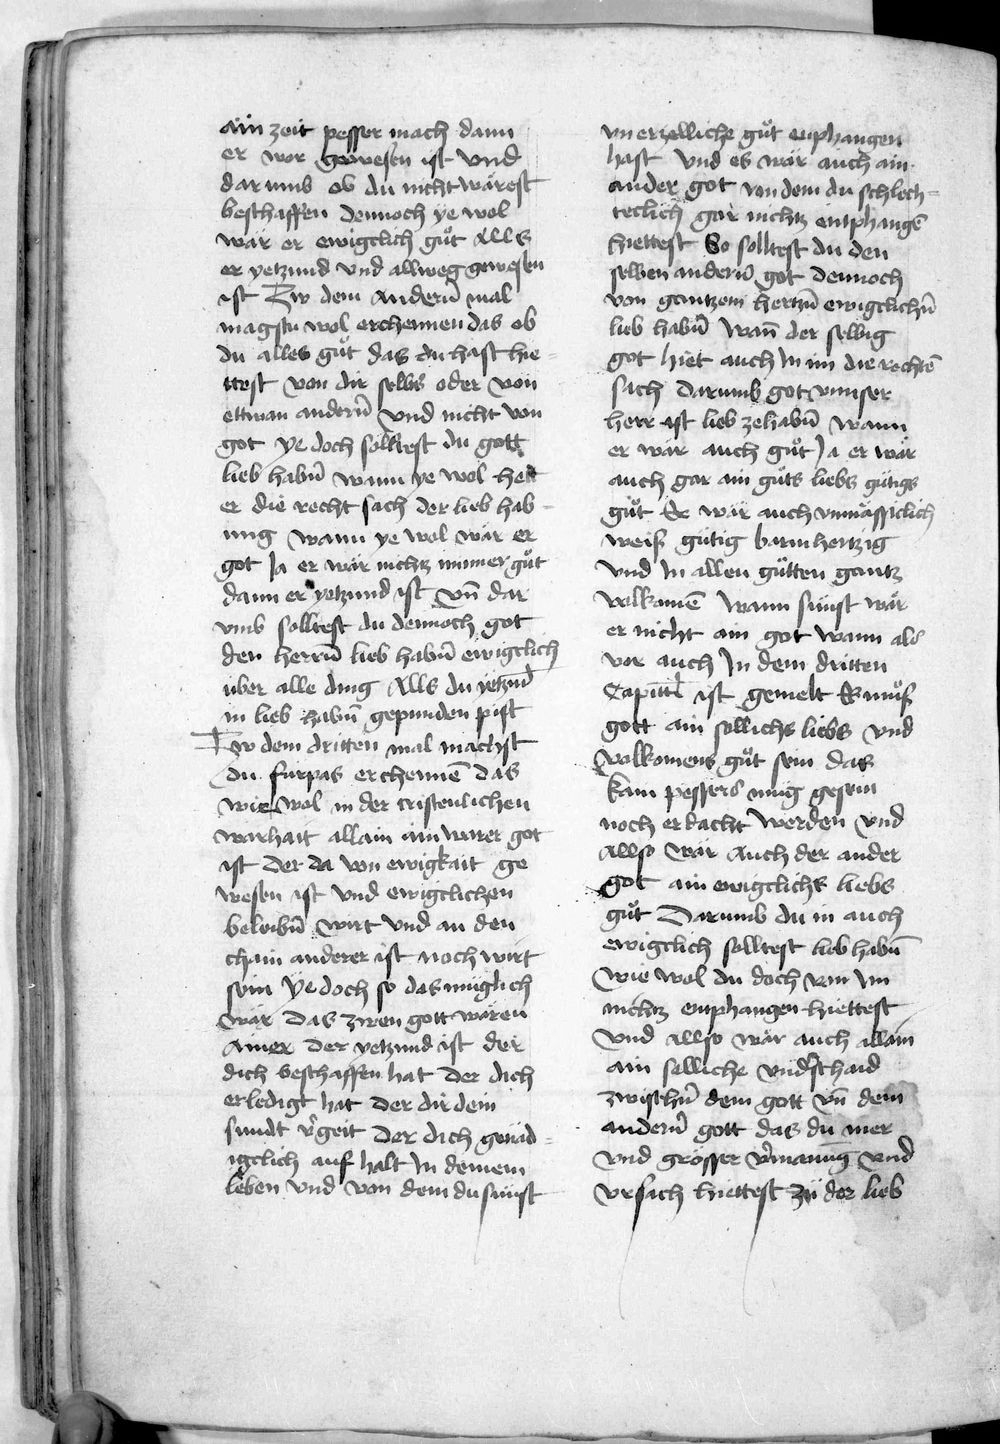 ain zeit pesser mach dann
er vor gewesen ist vnd
darumb ob du nicht wärest
beschaffen dennoch ye wol
wär er ewigclich gůt Alls
er yetzund vnd allweg gewesen
ist Zw dem anderñ mal
magstu wol erchennen das ob
du alles gůt das du hast hie-
ttest von dir selbs oder von
ettwan anderñ vnd nicht von
got ye doch solltest du gott
lieb habñ wann ye wol hett
er die recht sach der lieb hab-
ung wann ye wol wär er
got Ja er wär nichtz mynner gůt
dann er yetzund ist vñ dar
vmb solltest du dennoch got
den herrñ lieb habñ ewigclich
über alle ding Alls du yetzund
in lieb habñ gepunden pist
Zw dem dritten mal machst
du fürpas erchennē das
wie wol in der cristenlichen
warhait allain ain warer got
ist der da von ewigkait ge
wesen ist vnd ewigclichen
beleibñ wirt vnd an den
chain anderer ist noch wirt
sein Ye doch so das müglich
wär das zwen gott wären
Ainer der yetzund ist der
dich beschaffen hat der dich
erledigt hat der dir dein
sundt v̉geit der dich genäd-
igclich auf halt In deinem
leben vnd von dem du sünst
vnerzelliche gůt enphangen
hast vnd es wär auch ain
ander got von dem du schlech-
teclich gar nichtz emphangē
hiettest So solltest du den
selben anderñ got dennoch
von gantzem hertzñ ewigclichñ
lieb habñ wañ der selbig
got hiet auch In im die rechtē
sach darumb got vnnser
herr ist lieb zehabñ wann
er wär auch gůt Ja er wär
auch gar ain gůts liebs gütigs
gůt Er wär auch vnmässiclich
weis gütig barmhertzig
vnd In allen gůtten gantz
volkomē wann sünst wär
er nicht ain got wann als
vor auch In dem dritten
Capittl ist gemelt Er můs
gott ain sollichs liebs vnd
volkomens gůt sein das
kain pessers mug gesein
noch erdacht werden vnd
Allso wär auch der ander
got ain ewigclichs liebs
gůt Darumb du in auch
ewigclich solltest lieb habñ
wie wol du doch von im
nichtz emphangen hiettest
vnd Allso wär auch allain
ain solliche vnd̉schaid
zwischñ dem gott vñ dem
anderñ gott das du mer
vnd grösser v̉manung vnd
vrsach hiettest zü der lieb